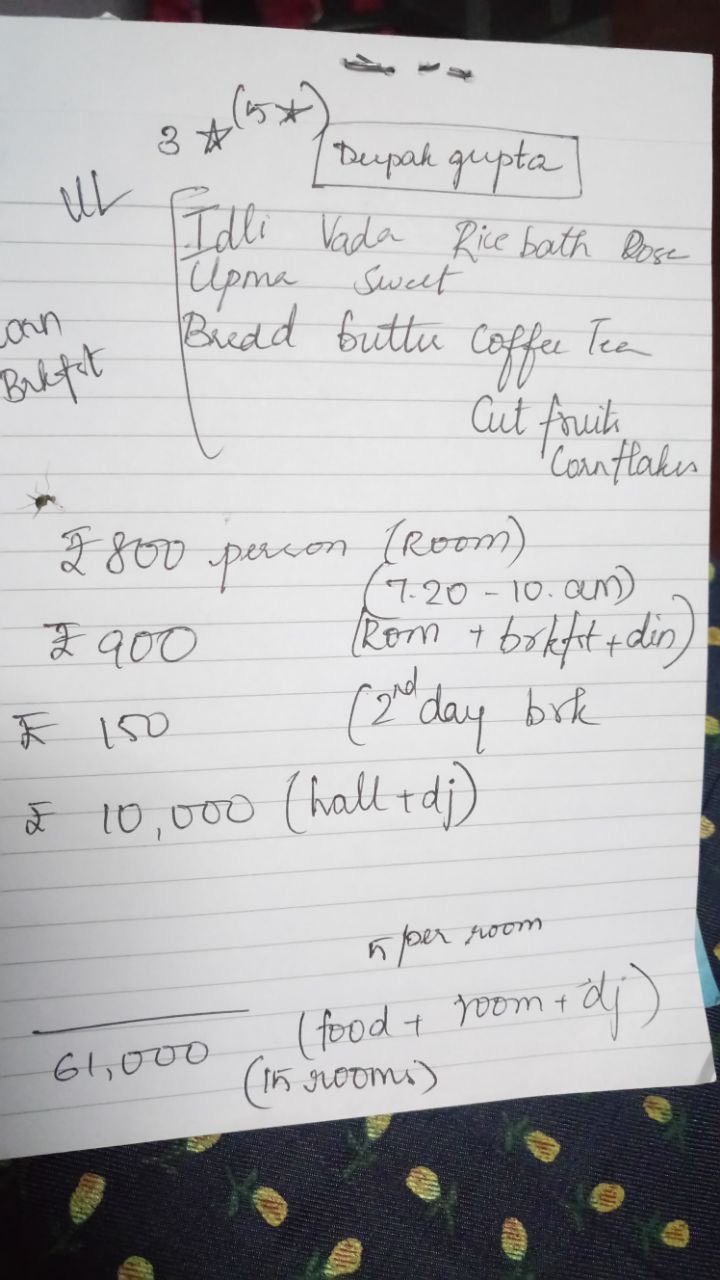 3 ☆ (5☆)
Deepak gupta
Idli Vada Rice bath Dose
Upma Sweet
Bread butter Coffee Tea
Brkfst
Cut fruits
Cornflakes
₹ 800 person (Room)
(7.20 - 10. am)
₹ 900 (Rom + brkfst + din)
₹ 150 (2nd day brk
₹ 10,000 (hall + dj)
5 per room
61,000 (food + room + dj)
(15 rooms)